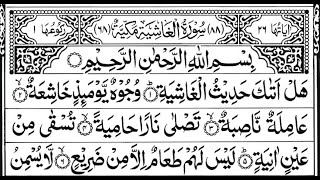 اٰيَاتُهَا ٢٦ (٨٨) سُوْرَةُ الْغَاشِيَةِ مَكِّيَّةٌ (٦٨) رُكُوْعُهَا ١
بِسْمِ اللّٰهِ الرَّحْمٰنِ الرَّحِيْمِ
هَلْ اَتٰىكَ حَدِيْثُ الْغَاشِيَةِ ۝١ وُجُوْهٌ يَّوْمَىِٕذٍ خَاشِعَةٌ ۝٢
عَامِلَةٌ نَّاصِبَةٌ ۝٣ تَصْلٰى نَارًا حَامِيَةً ۝٤ تُسْقٰى مِنْ
عَيْنٍ اٰنِيَةٍ ۝٥ لَيْسَ لَهُمْ طَعَامٌ اِلَّا مِنْ ضَرِيْعٍ ۝٦ لَّا يُسْمِنُ